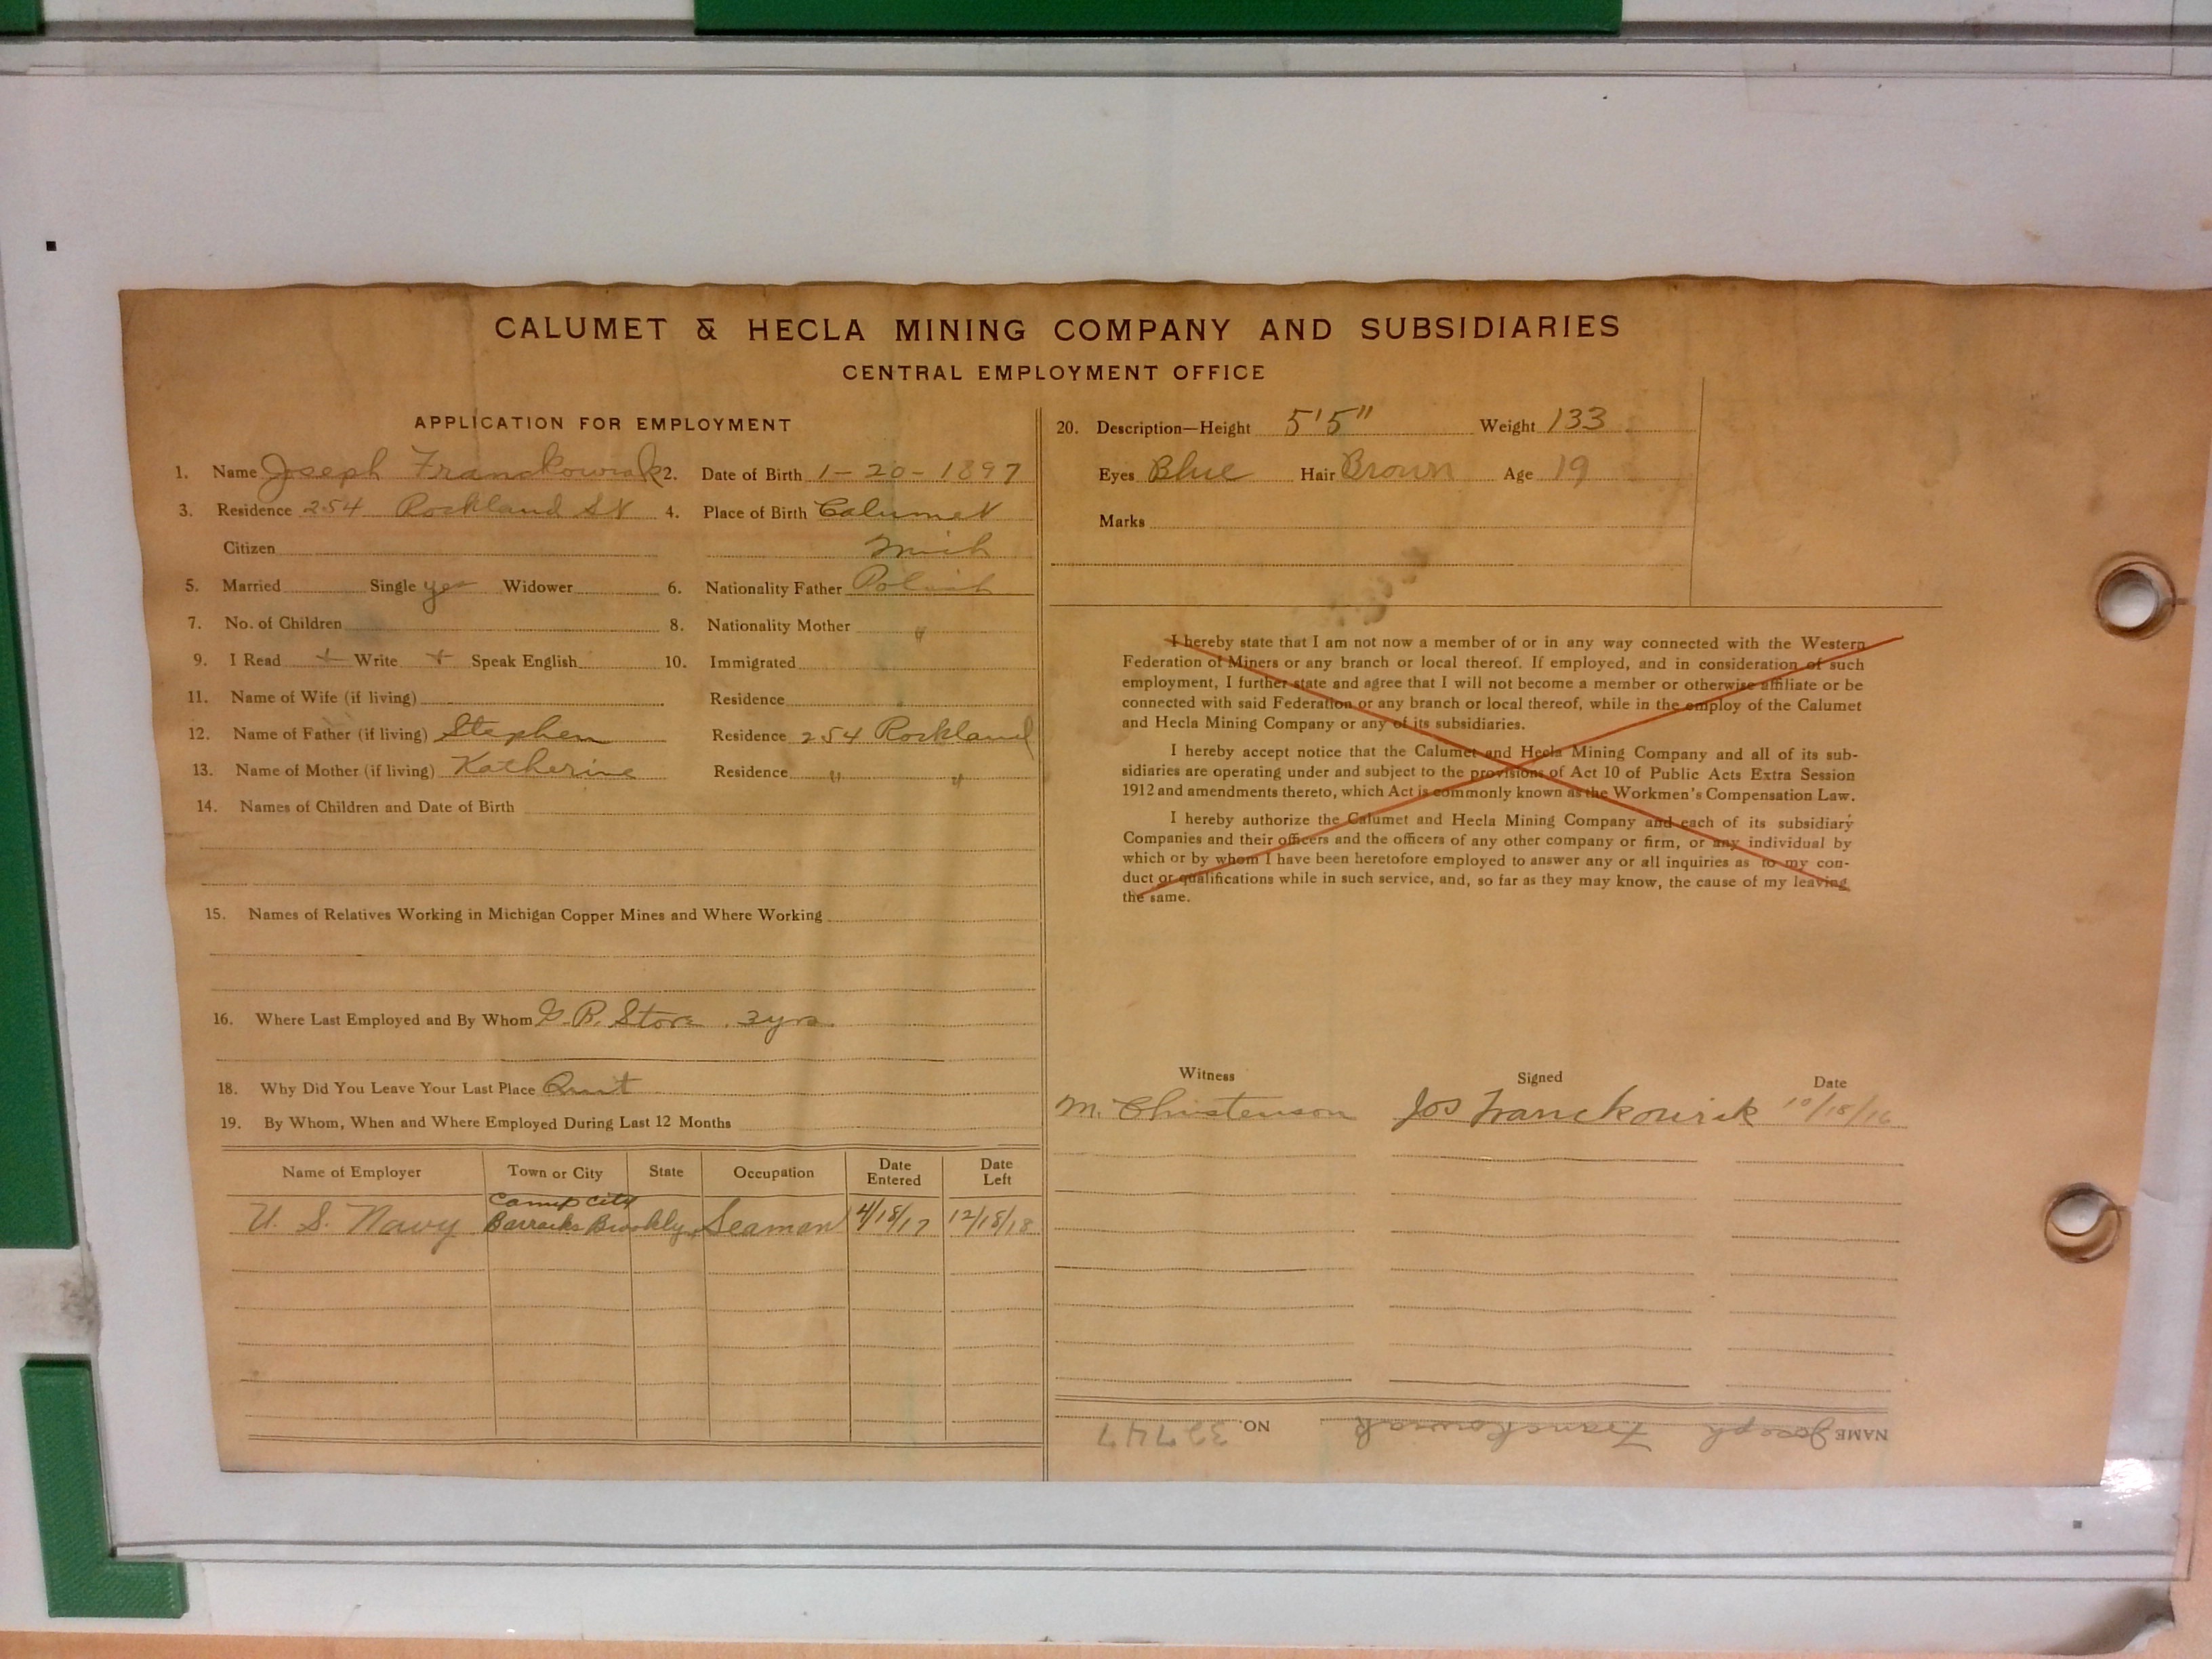 CALUMET & HECLA MINING COMPANY AND SUBSIDIARIES
CENTRAL EMPLOYMENT OFFICE
APPLICATION FOR EMPLOYMENT
1. Name Joseph Franckowiak 2. Date of Birth 1-20-1897
3. Residence 254 Rockland St 4. Place of Birth Calumet
Citizen Mich
5. Married Single yes Widower 6. Nationality Father Polish
7. No. of Children 8. Nationality Mother "
9. I Read + Write + Speak English 10. Immigrated
11. Name of Wife (if living) Residence
12. Name of Father (if living) Stephen Residence 254 Rockland
13. Name of Mother (if living) Katherine Residence " "
14. Names of Children and Date of Birth
15. Names of Relatives Working in Michigan Copper Mines and Where Working
16. Where Last Employed and By Whom Store
18. Why Did You Leave Your Last Place Quit
19. By Whom, When and Where Employed During Last 12 Months
Name of Employer Town or City State Occupation Date Entered Date Left
Camp City
U. S. Navy Barracks Brooklyn Seaman 4/18/17 12/18/18
20. Description—Height 5'5" Weight 133
Eyes Blue Hair Brown Age 19
Marks
I hereby state that I am not now a member of or in any way connected with the Western
Federation of Miners or any branch or local thereof. If employed, and in consideration of such
employment, I further state and agree that I will not become a member or otherwise affiliate or be
connected with said Federation or any branch or local thereof, while in the employ of the Calumet
and Hecla Mining Company or any of its subsidiaries.
I hereby accept notice that the Calumet and Hecla Mining Company and all of its sub-
sidiaries are operating under and subject to the provisions of Act 10 of Public Acts Extra Session
1912 and amendments thereto, which Act is commonly known as the Workmen's Compensation Law.
I hereby authorize the Calumet and Hecla Mining Company and each of its subsidiary
Companies and their officers and the officers of any other company or firm, or any individual by
which or by whom I have been heretofore employed to answer any or all inquiries as to my con-
duct or qualifications while in such service, and, so far as they may know, the cause of my leaving
the same.
Witness Signed Date
M. Christenson Jos Franckowiak 10/18/16
NAME Joseph Franckowiak NO. 32747